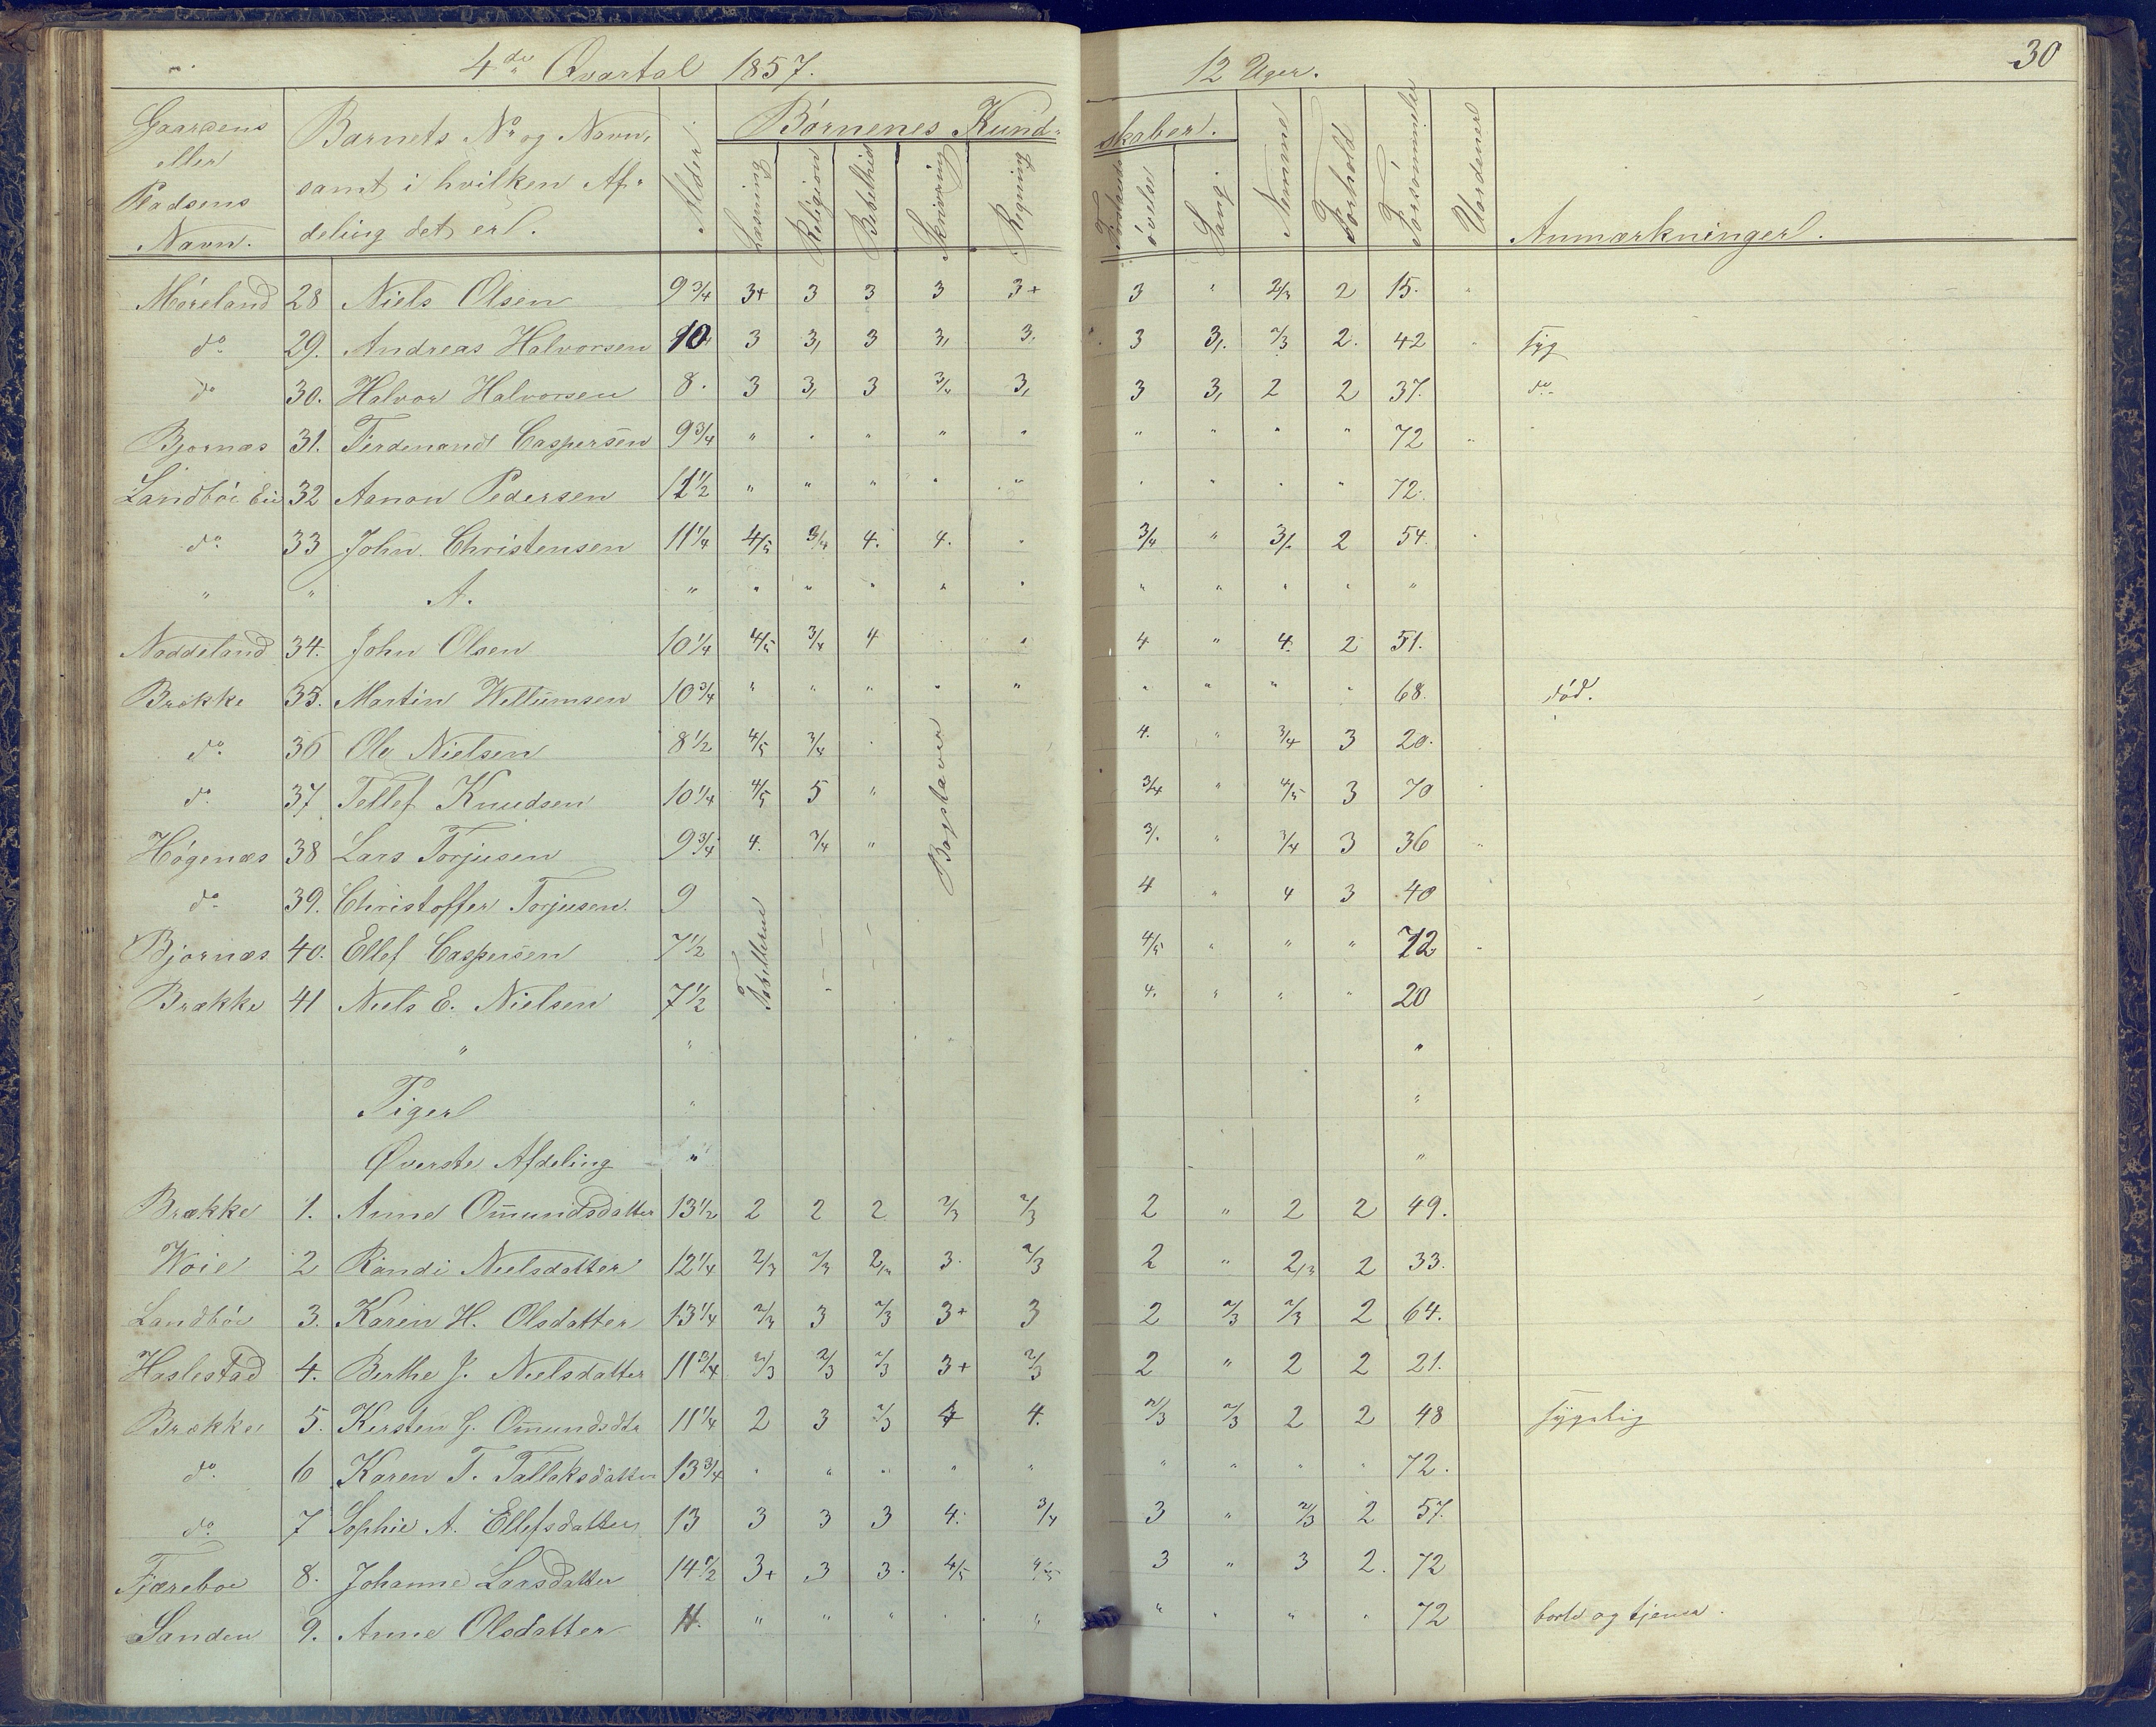 4de Qvartal 1857. 12 Uger. 30
Gaardens eller Pladsens Navn. Barnets No og Navn, samt i hvilken Afdeling det er. Alder. Børnenes Kundskaber. Læsning Religion Skrivning Regning Sang. Nemme Forhold Forsømmelser Anmærkninger.
Møreland 28 Niels Olsen 9 3/4 3+ 3 3 3 3+ 3 " 2/3 2 15.
do 29. Andreas Halvorsen 10 3 3, 3 3, 3, 3 3,. 2/3 2. 42 syg
do 30. Halvor Halvorsen 8. 3 3, 3 3/4 3, 3 3, 2 2 37. do
Bjornæs 31. Ferdenandt Caspersen 9 3/4 " " " " " " " " " 72
Landböe Eie 32 Aanon Pedersen 11 1/2 " " " " " " " " " 72.
do 33 John Christensen 11 1/4 4/5 3/4 4. 4. " 3/4 " 3/. 2 54.
" " A. " " " " " " " " " " "
Noddeland 34. John Olsen 10 1/4 4/5 3/4 4 " 4 " 4. 2 51.
Brække 35. Martin Willumsen 10 3/4 " " " " " " " " " 68. död.
do 36 Ole Nielsen 8 1/2 4/5 3/4 4. " 3/4 3 20.
do 37 Tellef Knudsen 10 1/4 4/5 5 " Bogstaver 3/4 " 4/5 3 70
Högenæs 38 Lars Torjusen 9 3/4 4. 3/4 " 3/. " 3/4 3 36
do 39. Christoffer Torjusen. 9 4 " 4 3 40
Bjornæs 40. Ellef Caspersen 7 1/2 Tabellerne 4/5 " " " 72
Brække 41 Niels E. Nielsen 7 1/2 4. " " " 20
" " "
Piger " "
Øverste Afdeling " "
Brække 1. Anne Omundsdatter 13 1/2 2 2 2 2/3 2/3 2 " 2 2 49.
Woie 2 Randi Nielsdatter 12 1/4 2/3 2/3 2/3 3. 2/3 2 " 2/3 2 33.
Landböe 3. Karen H. Olsdatter 13 1/4 2/3 3 2/3 3+ 3 2 2/3 2/3 2 64.
Haslestad 4. Berthe J. Nielsdatter 11 3/4 2/3 2/3 2/3 3+ 2/3 2 " 2 2 21.
Brække 5. Kersten G. Omundsdtr 11 1/4 2 3 2/3 4 4. 2/3 2/3 2 2 48 sygelig
do. 6 Karen T. Tallaksdatter 13 3/4 " " " " " " " " " 72.
do. 7 Sophie A. Ellefsdatter 13 3 3 3 4. 3/4 3 " 2/3 2 57.
Fjæreboe 8. Johanne Larsdatter 14 1/2 3+ 3 3. 4/5 4/5 3 " 3 2. 72
Sanden 9. Anne Olsdatter 11. " " " " " " " " " 72 borte og tjener.